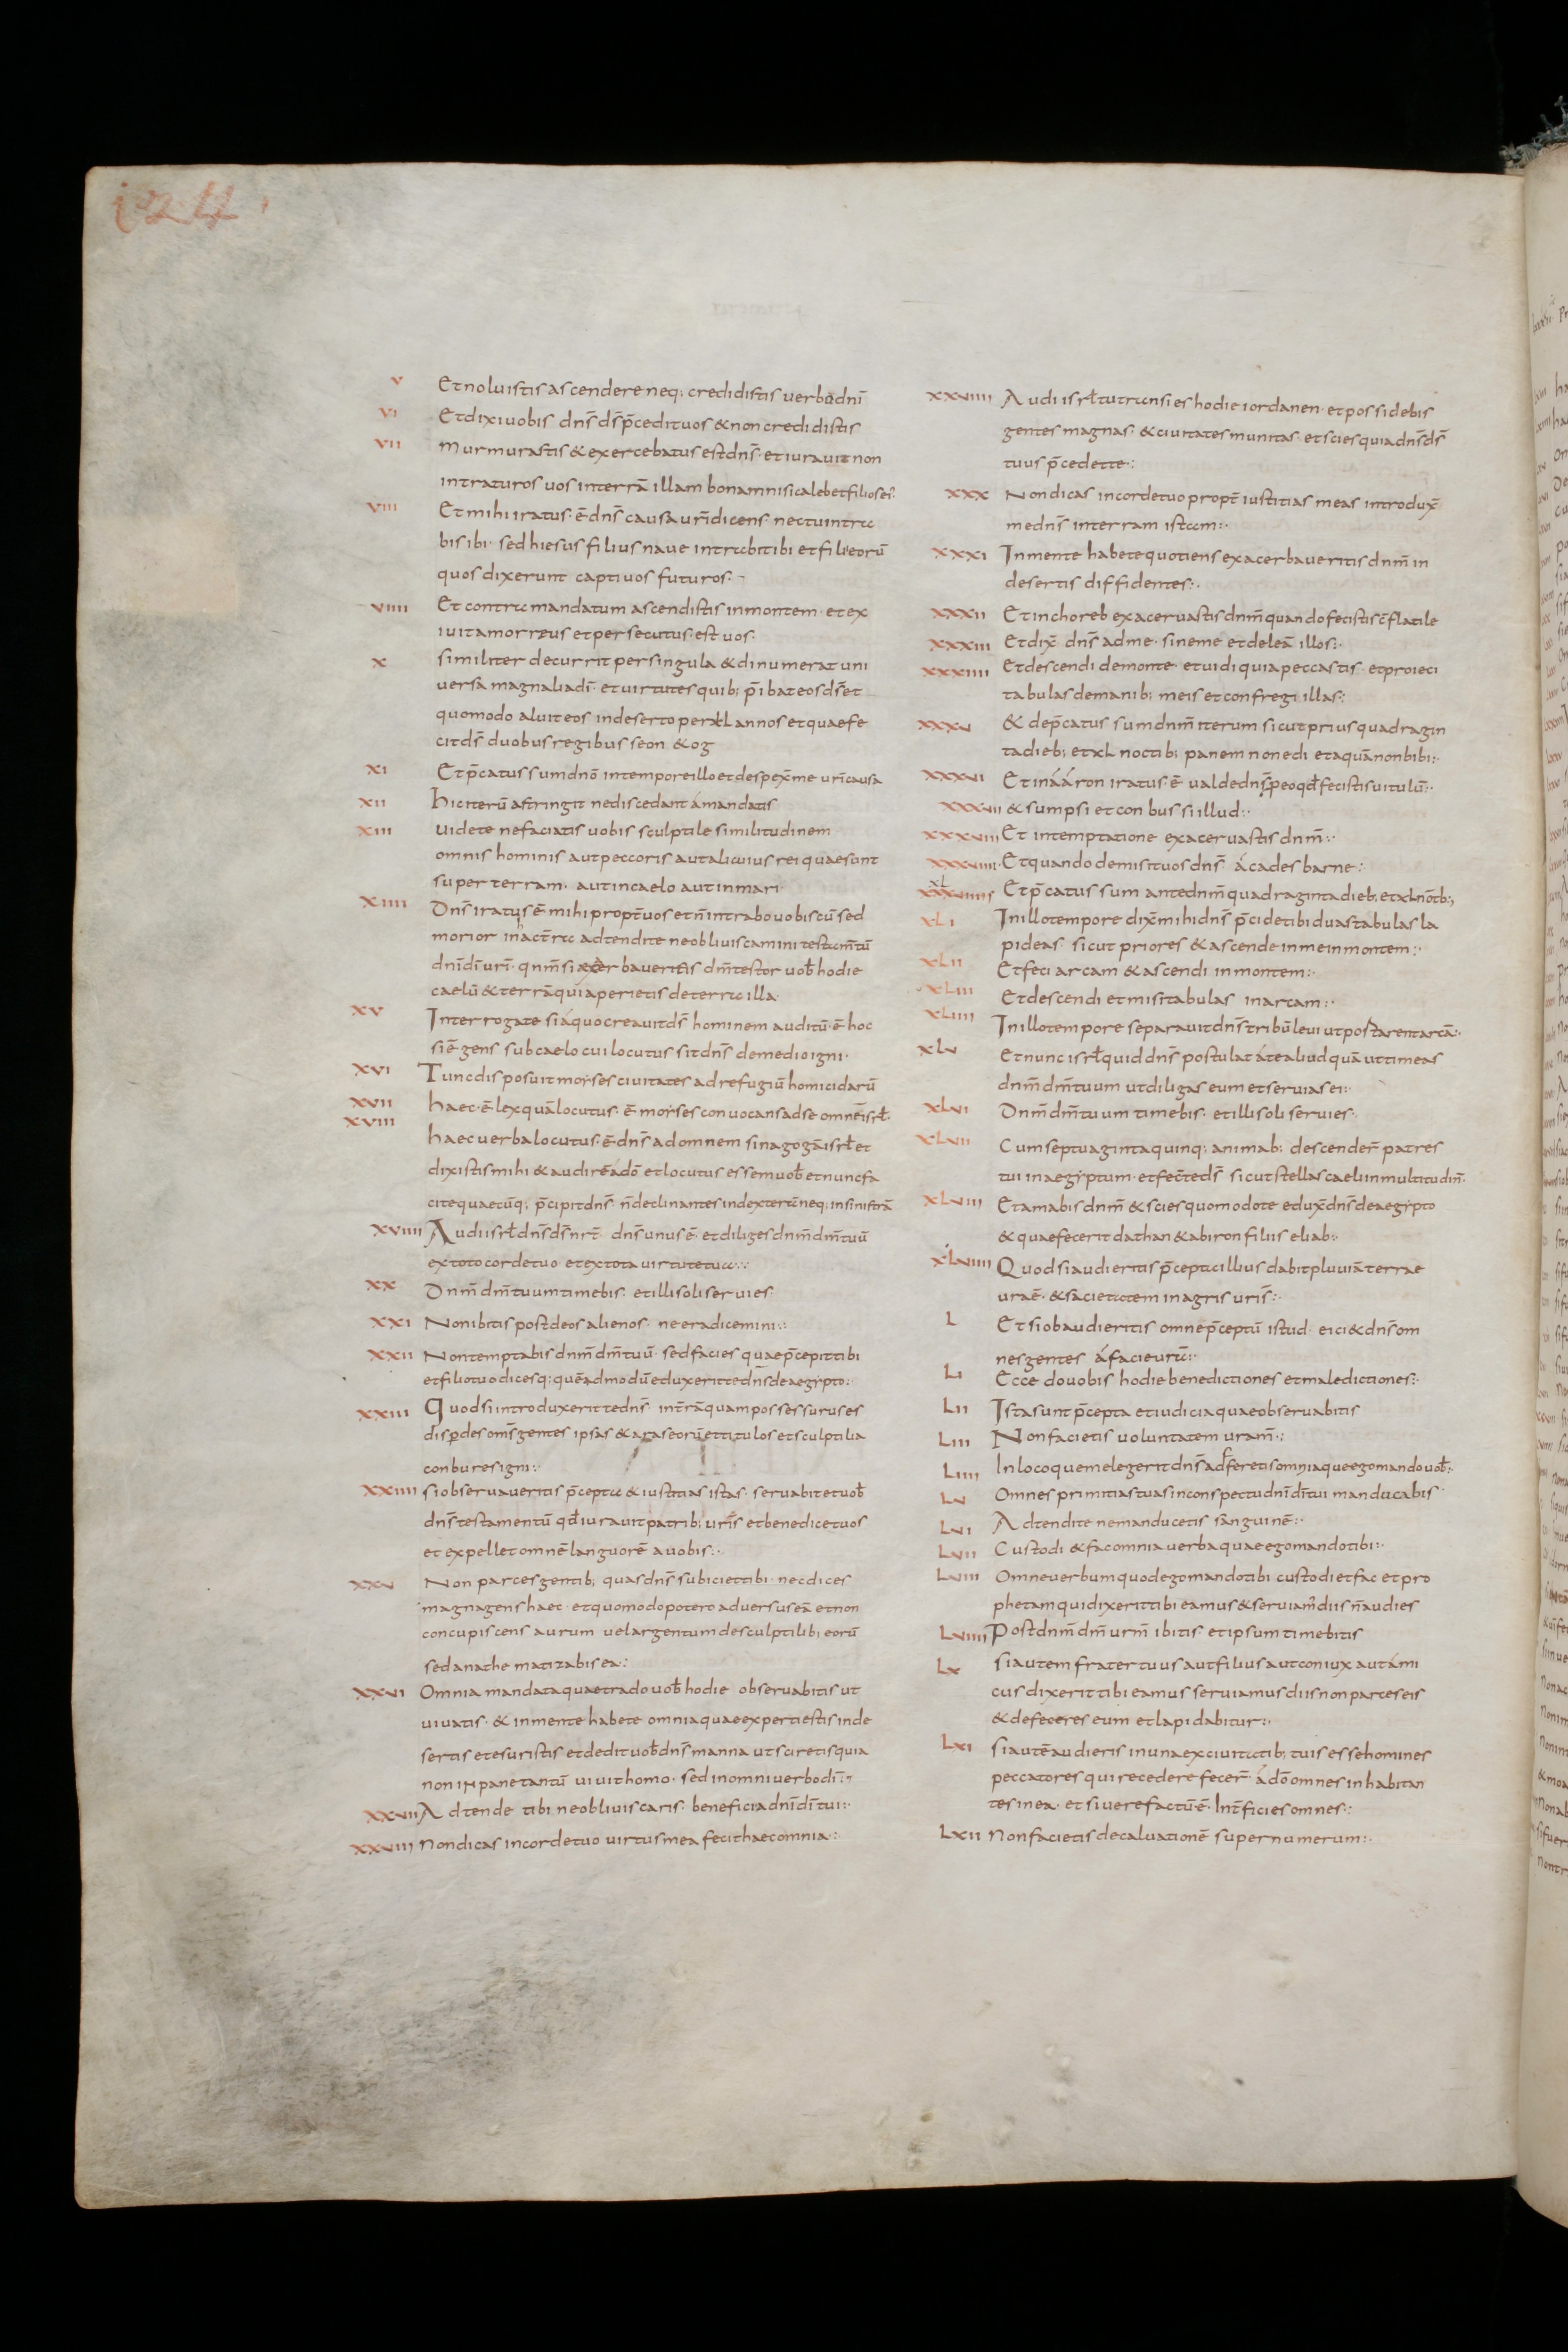 V Et noluistis ascendere neq; credidistis uerbo dnī
VI Et dixi uobis dn̄s ds̄ p̄cedit uos & non credidistis
VII Murmurastis & exercebatus est dn̄s · et iurauit non
intraturos uos in terrā illam bonam nisi caleb et filios ei'
VIII Et mihi iratus · ē dn̄s causa urī dicens · nec tu intra
bis ibi · sed hiesus filius naue intrabit ibi et filii eorū
quos dixerunt captiuos futuros ·
VIIII Et contra mandatum ascendistis in montem · et ex
iuit amorreus et persecutus · est uos ·
X similiter decurrit per singula & dinumerat uni
uersa magnalia dī · et uirtutes quib; p̄ibat eos ds̄ et
quomodo aluit eos in deserto per xl annos et quae fe
cit ds̄ duobus regibus seon & og
XI Et p̄catus sum dnō in tempore illo et despex̄ me urī causa
XII hic iterū astringit ne discedant á mandatis
XIII uidete ne faciatis uobis sculptile similitudinem
omnis hominis aut peccoris aut alicuius rei quae sunt
super terram · aut in caelo aut in mari ·
XIIII Dn̄s iratus ē mihi propt̄ uos et n̄ intrabo uobiscū sed
morior in hac t̄ra adtendite ne obliuiscamini testam̄tū
dnī dī urī · qnm̄ si exacerbaueritis dm̄ testor uob̄ hodie
caelū & terrā quia perietis de terra illa ·
XV Interrogate si á quo creauit ds̄ hominem auditū · ē hoc
si ē gens sub caelo cui locutus sit dn̄s de medio igni ·
XVI Tunc disposuit moẏses ciuitates ad refugiū homicidarū
XVII haec · ē lex quā locutus · ē moẏses conuocans ad se omnē isrł ·
XVIII haec uerba locutus · ē · dn̄s ad omnem sinagogā isrł et
dixistis mihi & audire á dō et locutus essem uob̄ et nunc fa
cite quaecūq; p̄cipit dn̄s · n̄ declinantes in dexterā neq; in sinistrā
XVIIII Audi isrł dn̄s ds̄ nr̄ · dn̄s unus ē · et diliges dnm̄ dm̄ tuū
ex toto corde tuo · et ex tota uirtute tua :·
XX Dnm̄ dm̄ tuum timebis · et illi soli seruies
XXI Non ibitis post deos alienos · ne eradicemini :·
XXII Non temptabis dnm̄ dm̄ tuū · sed facies quae p̄cepit tibi
et filio tuo dicesq; quēadmodū eduxerit te dn̄s de aegẏpto :
XXIII Quod si introduxerit te dn̄s · in t̄rā quam possessurus es
disp̱des om̄s gentes ipsas & aras eorū et titulos et sculptilia
conbures igni :·
XXIIII si obseruaueritis p̄cepta & iustitias istas · seruabit et uob̄
dn̄s testamentū qd̄ iurauit patrib; urīs et benedicet uos
et expellet omnē languorē a uobis :·
XXV Non parces gentib; quas dn̄s subiciet tibi · nec dices
magna gens haec · et quomodo potero aduersus eā et non
concupiscens aurum uel argentum de sculptilib; eorū
sed anathematizabis ea :
XXVI Omnia mandata quae trado uob̄ hodie obseruabitis ut
uiuatis · & in mente habete omnia quae experti estis in de
sertis et esuristis et dedit uob̄ dn̄s manna ut sciretis quia
non in pane tantū uiuit homo · sed in omni uerbo dī :·
XXVII Adtende tibi ne obliuiscaris · beneficia dnī dī tui :·
XXVIII Non dicas in corde tuo uirtus mea fecit haec omnia :·
XXVIIII Audi isrł tu transies hodie iordanen · et possidebis
gentes magnas · & ciuitates munitas · et scies quia dn̄s ds̄
tuus p̄cedet te :·
XXX Non dicas in corde tuo propt̄ iustitias meas introdux̄
me dn̄s in terram istam :·
XXXI In mente habete quotiens exacerbaueritis dnm̄ in
desertis diffidentes :·
XXXII Et in choreb exaceruastis dnm̄ quando fecistis c̄flatile
XXXIII Et dix̄ dn̄s ad me · sine me et deleā illos :·
XXXIIII Et descendi de monte · et uidi quia peccastis · et proieci
tabulas de manib; meis et confregi illas :·
XXXV & dep̄catus sum dnm̄ iterum sicut prius quadragin
ta dieb; et xl noctib; panem non edi et aquā non bibi :·
XXXVI Et in áaron iratus · ē ualde dn̄s p̱ eo qd̄ fecistis uitulū :·
XXXVII & sumpsi et conbussi illud :·
XXXVIII Et in temptatione exaceruastis dnm̄ :·
XXXVIIII Et quando demisit uos dn̄s á cades barne :·
XL Et p̄catus sum ante dnm̄ quadraginta dieb; et xl noctb;
XLI In illo tempore dix̄ mihi dn̄s p̄cide tibi duas tabulas la
pideas sicut priores & ascende in me in montem :·
XLII Et feci arcam & ascendi in montem :·
XLIII Et descendi et misi tabulas in arcam :·
XLIIII In illo tempore separauit dn̄s tribū leui ut postarent arcā :·
XLV Et nunc isrł quid dn̄s postulat á te aliud quā ut timeas
dnm̄ dm̄ tuum ut diligas eum et seruias ei :·
XLVI Dnm̄ dm̄ tuum timebis · et illi soli seruies ·
XLVII Cum septuaginta quinq; animab; descender̄ patres
tui in aegẏptum · et fec̄ te ds̄ sicut stellas caeli in multitudin̄ ·
XLVIII Et amabis dnm̄ & scies quomodo te edux̄ dn̄s de aegẏpto
& quae fecerit dathan & abiron filiis eliab :·
XLVIIII Quod si audieritis p̄cepta illius dabit pluuiā terrae
uraē · & sacietatem in agris urīs :·
L Et si obaudieritis omne p̄ceptū istud · eici & dn̄s om
nes gentes á facie urā :·
LI Ecce do uobis hodie benedictiones et maledictiones :·
LII Ista sunt p̄cepta et iudicia quae obseruabitis
LIII Non facietis uoluntatem uram̄ :·
LIIII In loco quem elegerit dn̄s adferetis omnia quae ego mando uob̄ :·
LV Omnes primitias tuas in conspectu dnī dī tui manducabis ·
LVI Adtendite ne manducetis sanguinē :·
LVII Custodi & fac omnia uerba quae ego mando tibi :·
LVIII Omne uerbum quod ego mando tibi custodi et fac et pro
phetam qui dixerit tibi eamus & seruiam' diis n̄ audies
LVIIII Post dnm̄ dm̄ urm̄ ibitis et ipsum timebitis
LX si autem frater tuus aut filius aut coniux aut ámi
cus dixerit tibi eamus seruiamus diis non parces eis
& defeceres eum et lapidabitur :·
LXI si autē audieris in una ex ciuitatib; tuis esse homines
peccatores qui recedere fecer̄ á dō omnes inhabitan
tes in ea · et si uere factū · ē · Int̄ficies omnes :·
LXII Non facietis decaluationē super numerum :·